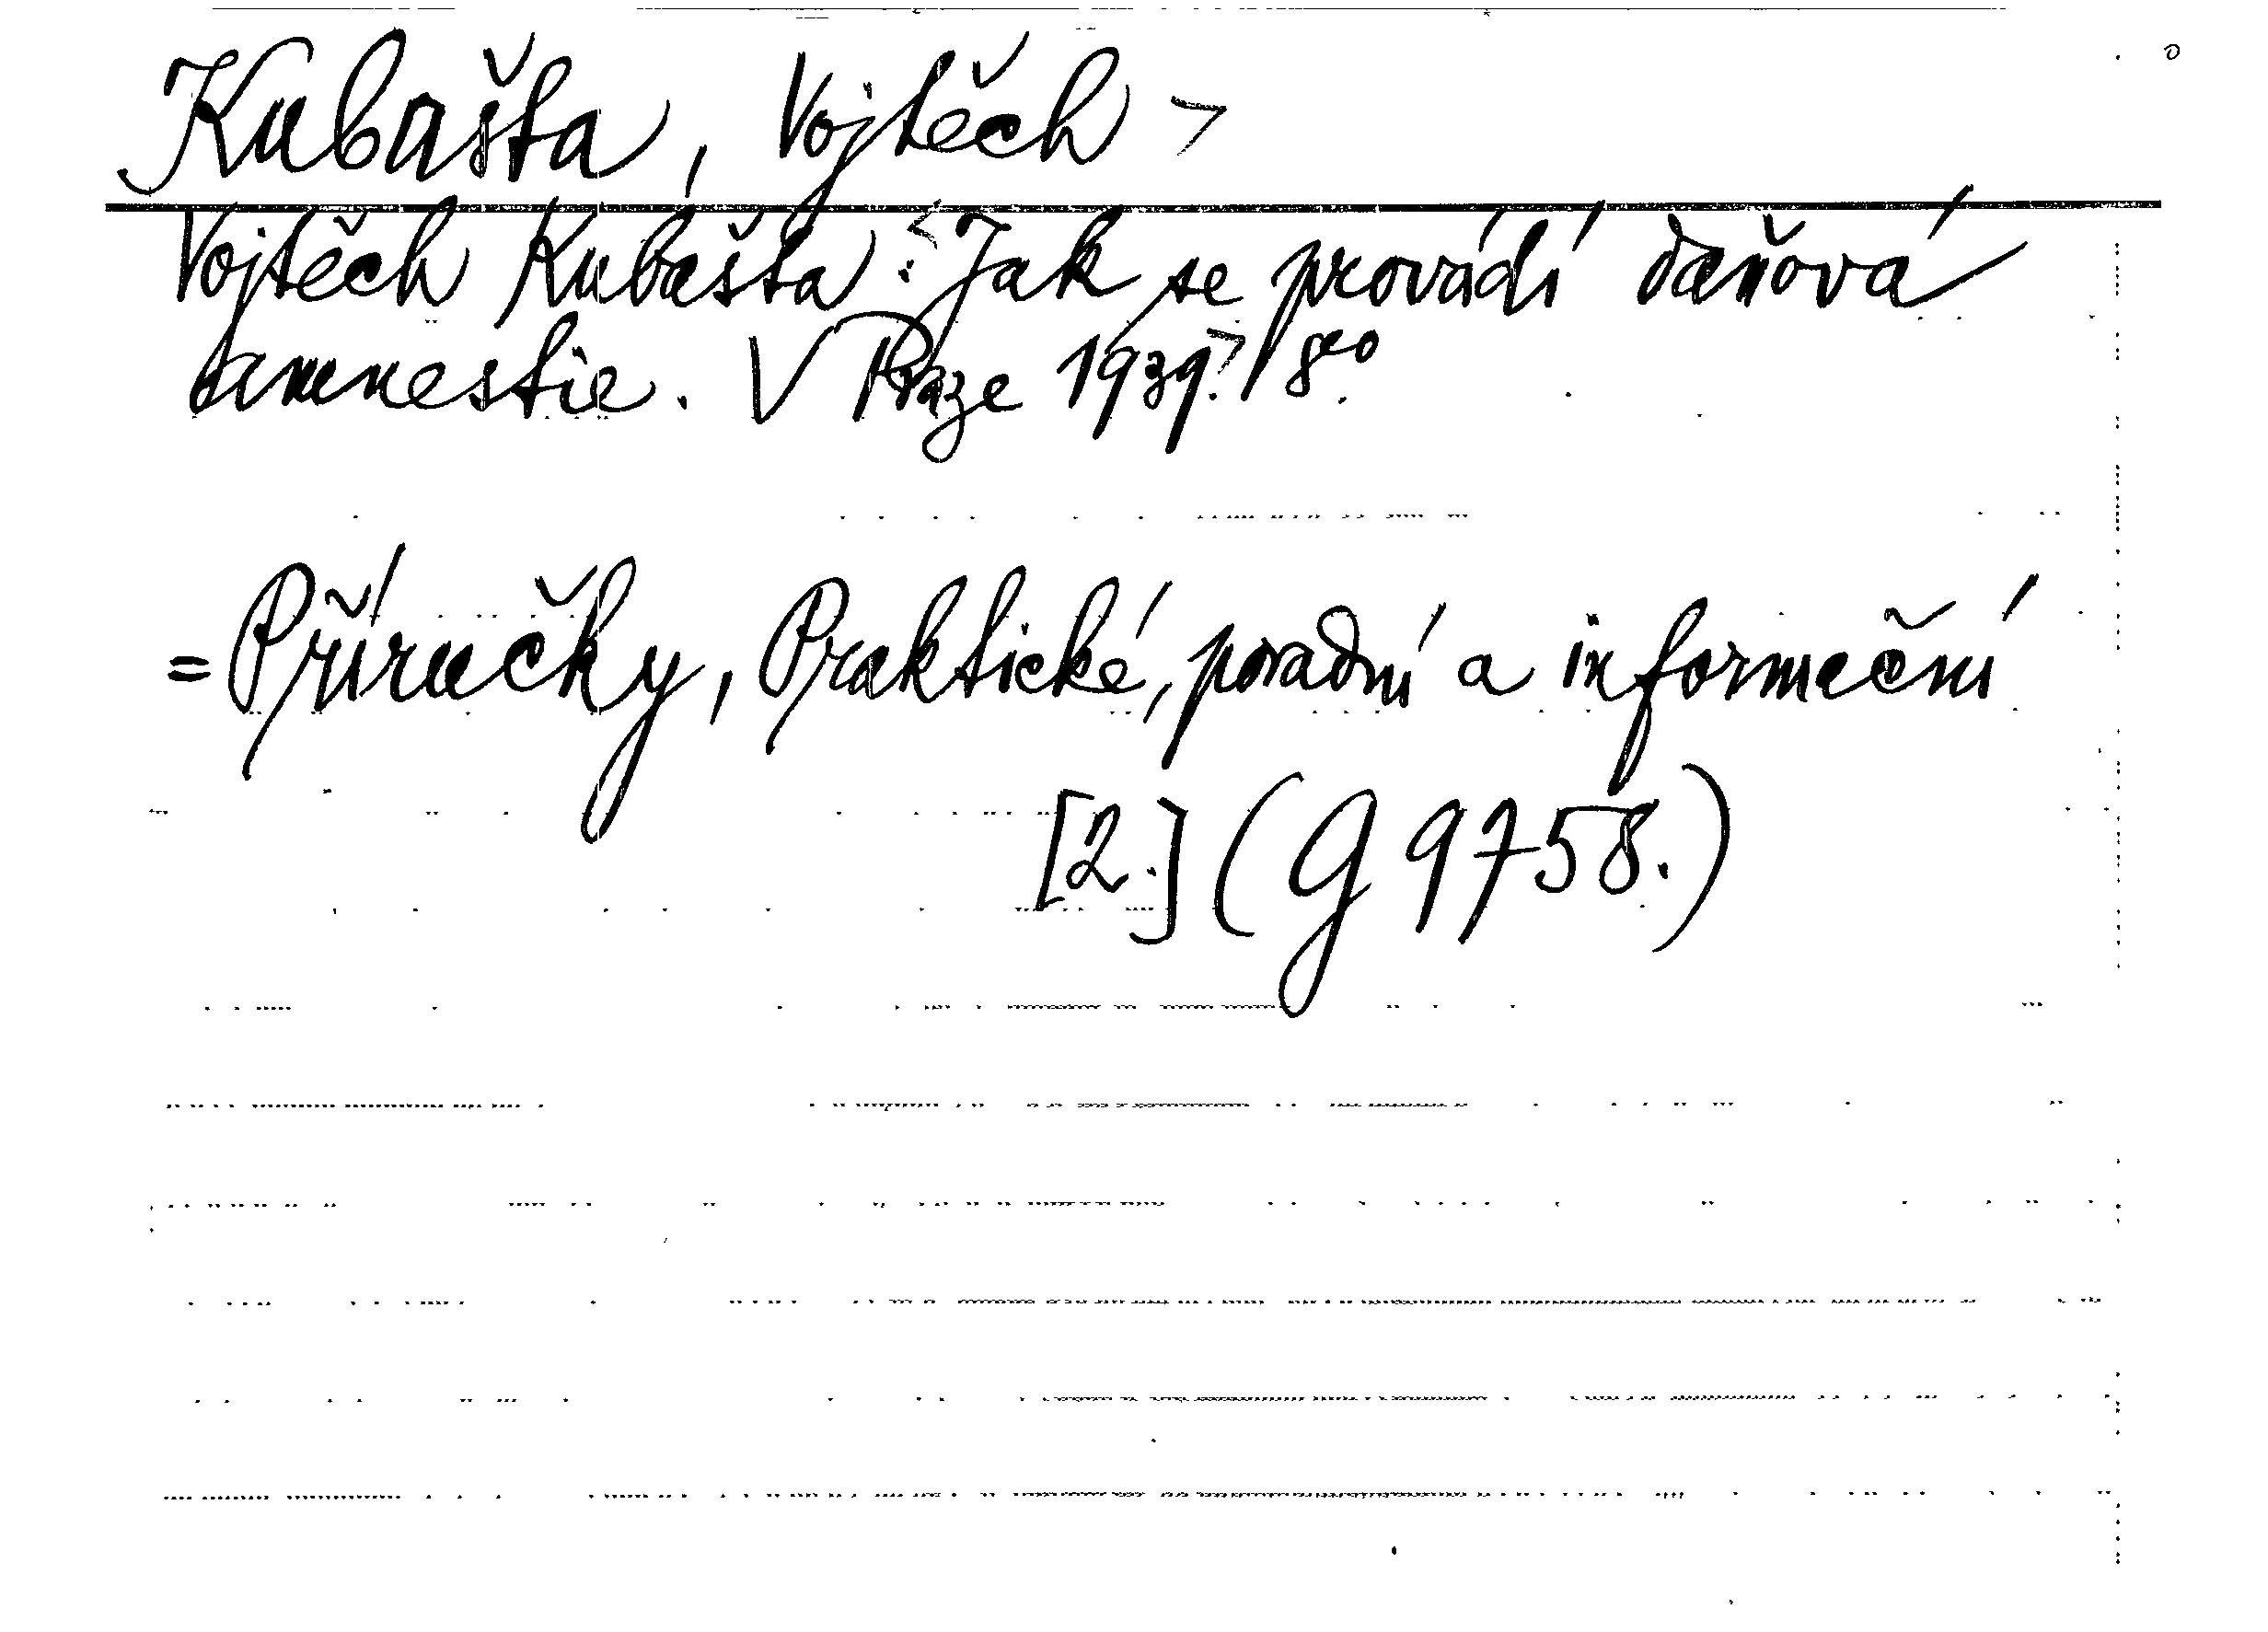 Kubašta, Vojtěch >
Vojtěch Kubašta: < Jak se provádí daňová
amnestie. V Praze 1939. > 8º.
= Příručky, Praktické, poradní a informační
[2.] (G 9758.)